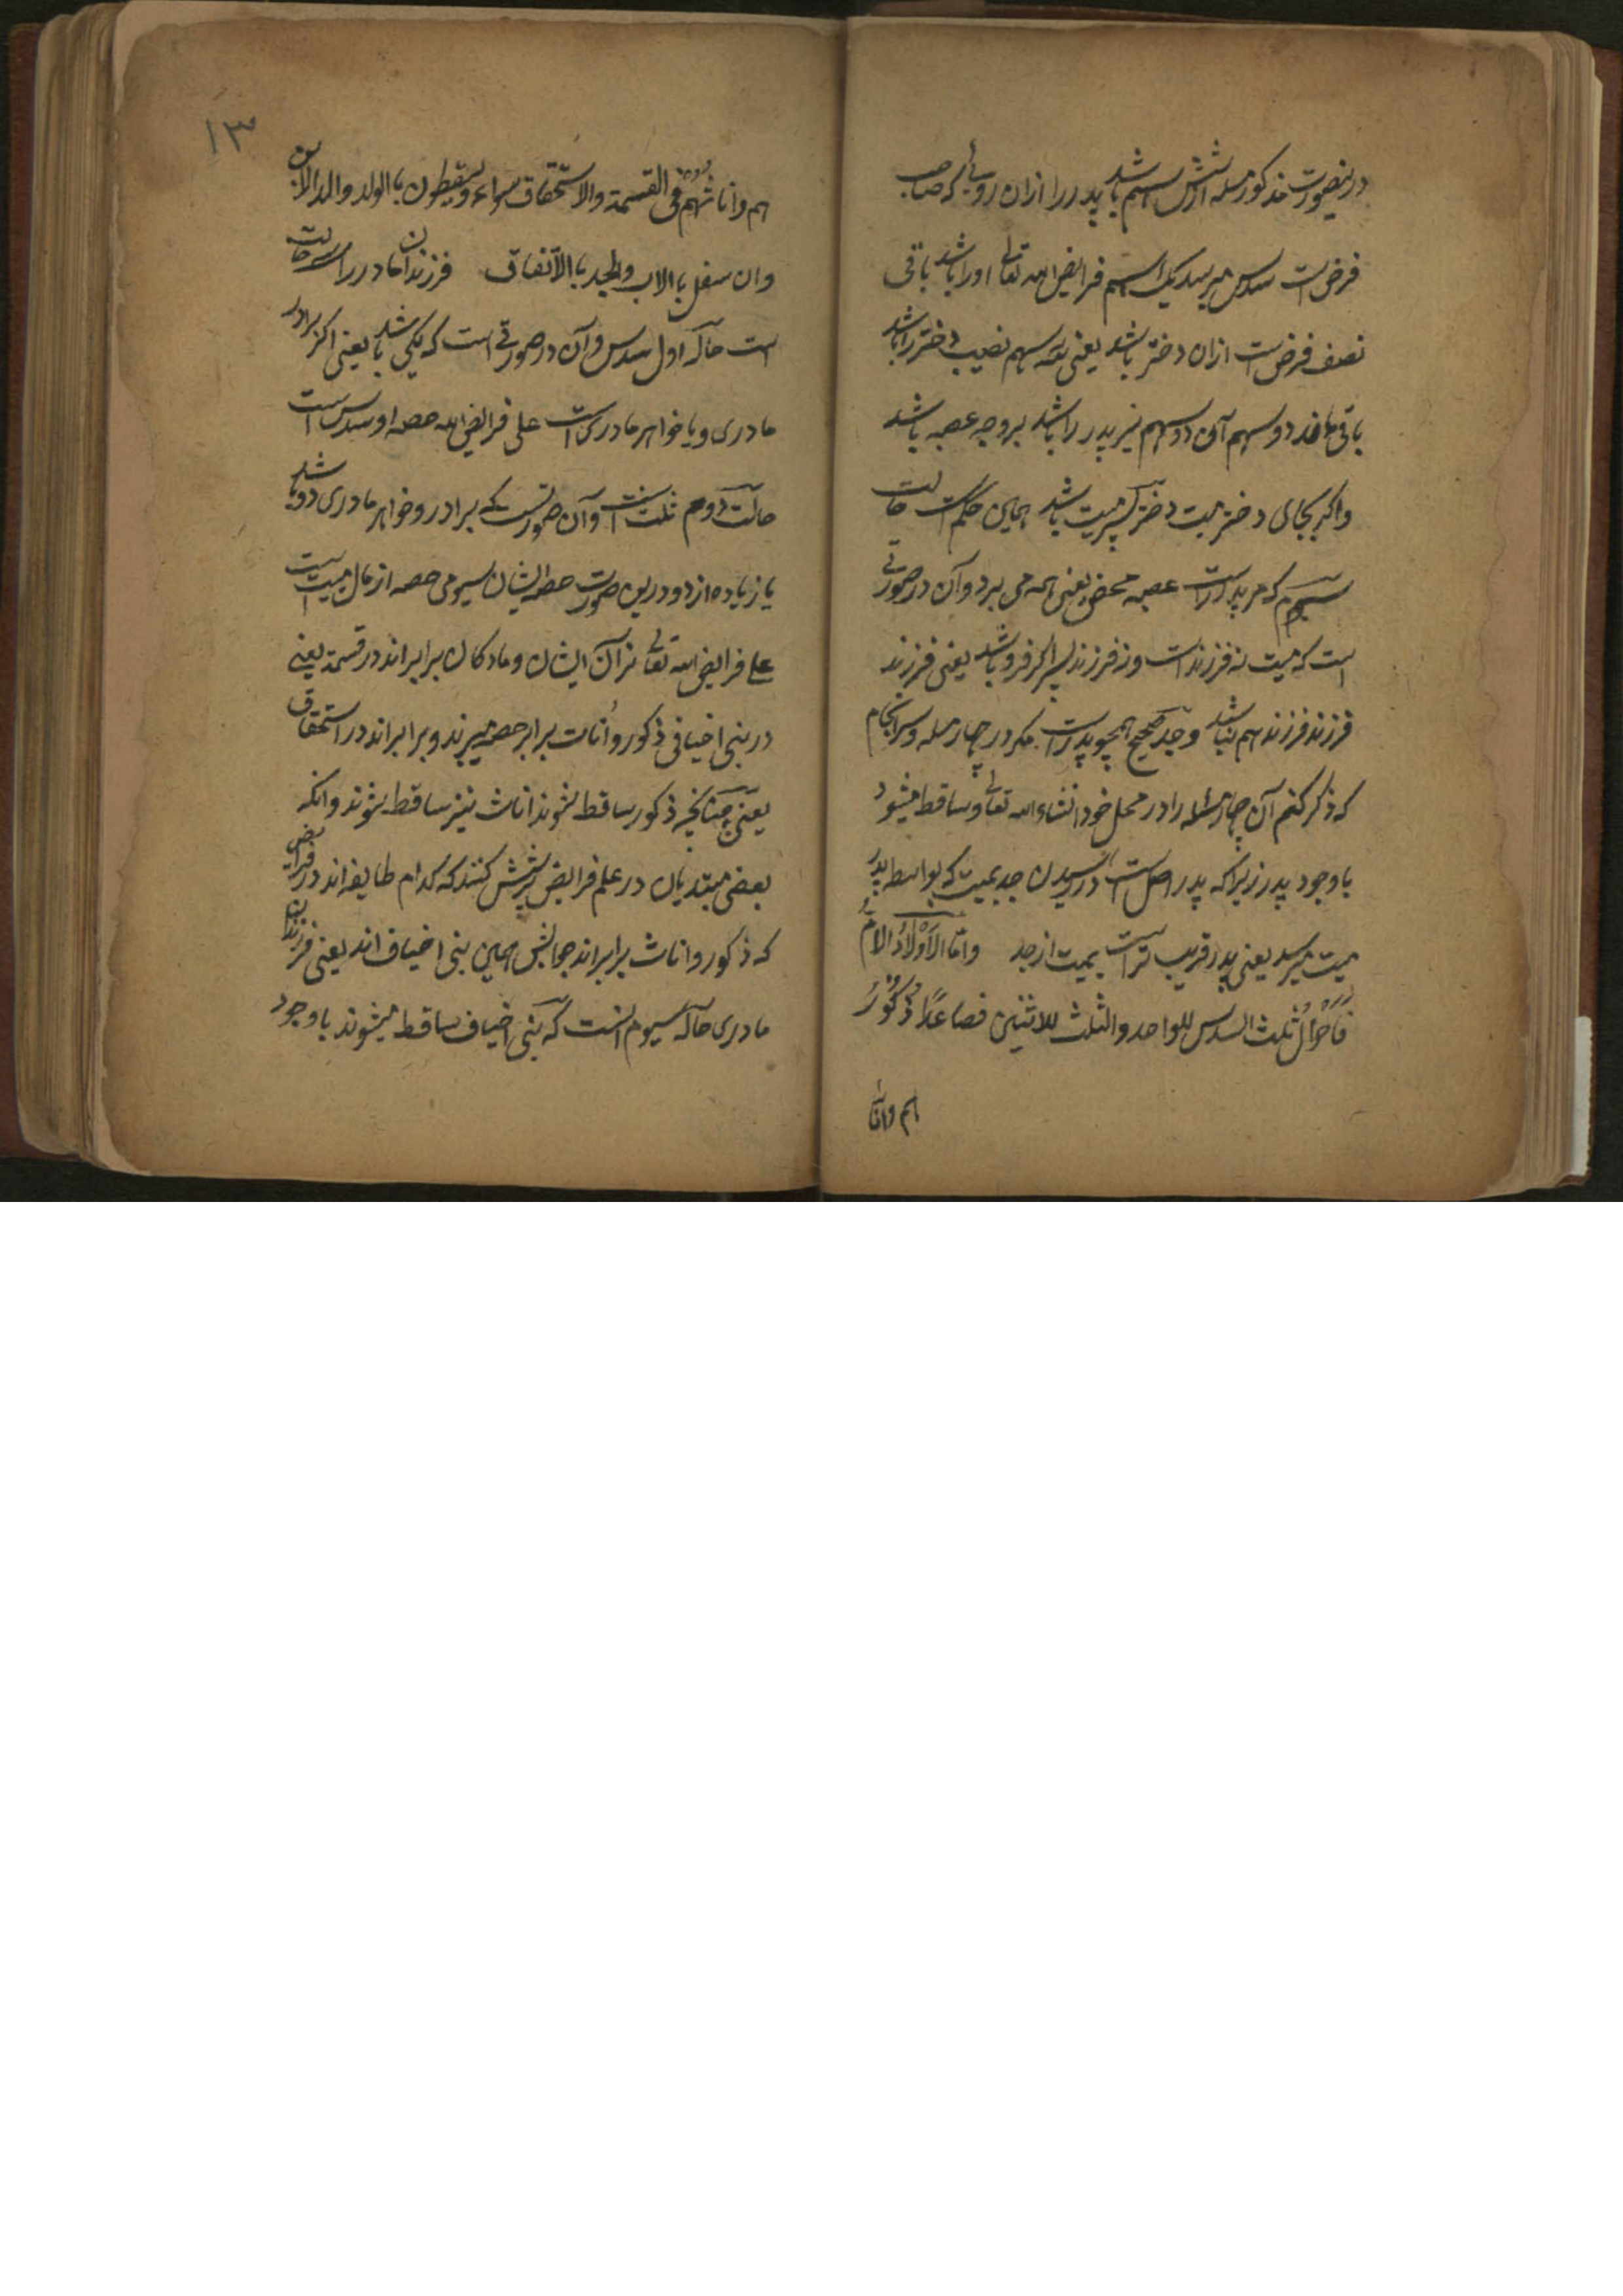 درینصورت مذکور مسله از شش سهم باشد پدر را ازان رو که صاحب
فرض است سدس میرسد یک سهم فرایض الله تعالی او را باشد باقی
نصف فرض است ازان دختر باشد یعنی سه سهم نصیب دختر را باشد
باقی ماند دو سهم آن دو سهم نیز پدر را باشد بر وجه عصبه باشد
واگر بجای دختر میت دختر پسر میت باشد همین حکم است حالت
سیوم که مر پدر راست عصبه محض یعنی همه می برد وآن در صورتی
است که میت نه فرزند است ونه فرزند پسر اگر فرو باشد یعنی فرزند
فرزند فرزند هم نباشد وجد صحیح همچو پدر است مگر در چهار مسله وسرانجام
که ذکر کنم آن چهار مسئله را در محل خود انشاء الله تعالی وساقط میشود
با وجود پدر زیرا که پدر اصل است در رسیدن جد بمیت که بواسطه پدر
میت میرسد یعنی پدر قریب تر است بمیت از جد واما الاولاد الام
فاحوال ثلث السدس للواحد والثلث للاثنین فصاعدا ذکور
هم واناث
۱۳
هم واناثهم فی القسمة والاستحقاق سواء ویسقطون باالولد والولد الابن
وان سفل باالاب والجد باالاتفاق فرزندان مادر را سه حالت
است حاله اول سدس وآن در صورتی است که یکی باشد یعنی اگر برادر
مادری ویا خواهر مادری است علی فرایض الله حصه او سدس است
حالت دوم ثلث است وآن صورتست که برادر وخواهر مادری دو باشد
یا زیاده از دو درین صورت حصه ایشان سیومی حصه از مال میت است
علی فرایض الله تعالی نران ایشان ومادکان برابر اند در قسمة یعنی
در بنی اخیافی ذکور واناث برابر حصه میبرند وبرابر اند در استحقاق
یعنی چنانچه ذکور ساقط نشوند اناث نیز ساقط نشوند وانکه
بعضی مبتدیان در علم فرایض پرسش کنند که کدام طایفه اند در فرایض
که ذکور واناث برابر اند جوابش همین بنی اخیاف اند یعنی فرزندان
مادری حاله سیوم انست که بنی اخیاف ساقط میشوند با وجود